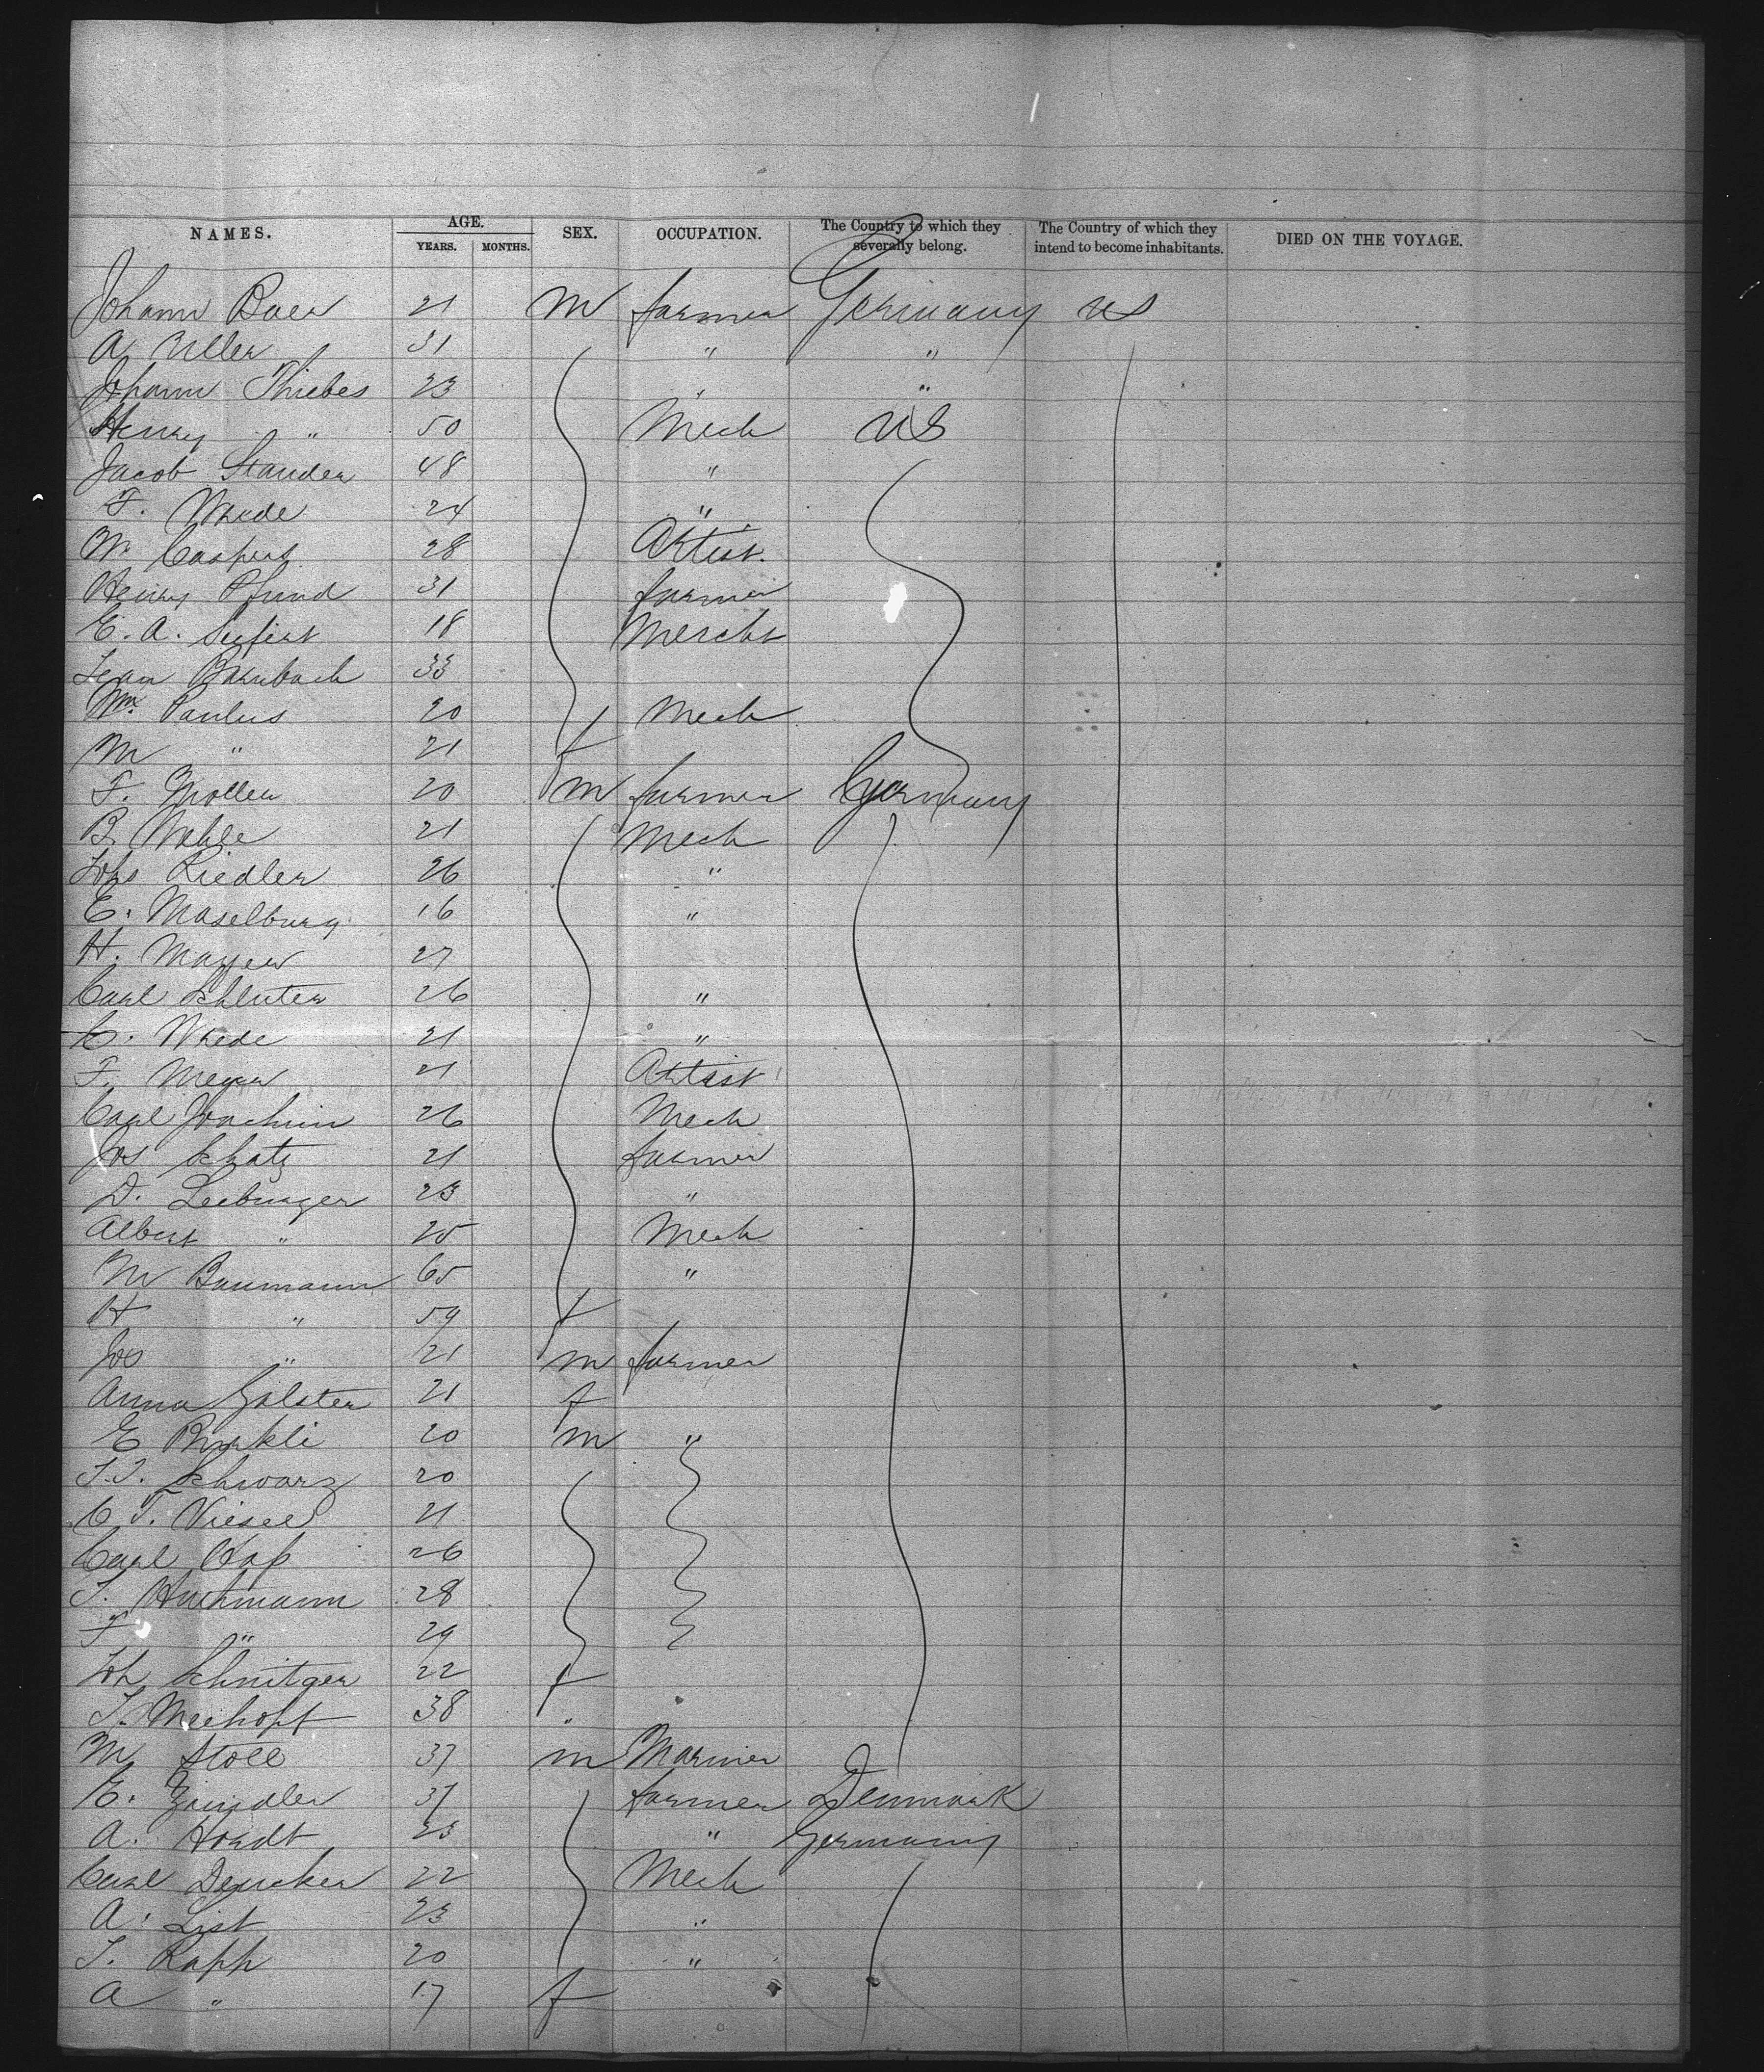 NAMES. AGE. YEARS. MONTHS. SEX. OCCUPATION. The Country to which they severally belong. The Country of which they intend to become inhabitants. DIED ON THE VOYAGE.
Johann Baer 21 M farmer Germany US
A. Uller 31 " "
Johann Thiebes 23 " "
Henry " 50 Mech US
Jacob Stander 48 "
F. Wrede 24 "
W. Caspers 28 Artist.
Henry Pfund 31 farmer
E. A. Seifert 18 Mercht
33
Wm. Paulus 20 Mech
M " 21 f
F. Moller 20 m farmer Germany
B. Wehle 21 Mech
Johs Riedler 26 "
E. Maselburg 16 "
H. Mayer 27
Carl Schluter 26 "
C. Wrede 21 "
F. Meyer 21 Artist
Carl Joachim 26 Mech
Jos Schatz 21 farmer
D. Leeburger 23 "
Albert " 25 Mech
M Baumann 65 "
H " 59 f
Jos " 21 m farmer
Anna Golster 21 f
E 20 m "
T.T. Schwarz 20
C T. 21
Carl 26
T. 28
F " 29
Joh Schnitger 22 f
T. Meehoft 38 "
M Stoll 37 m Mariner
E. Zundler 37 farmer Denmark
A. Hordt 23 " Germany
Carl Deucker 22 Mech
A. List 23 "
T. Rapp 20 "
A " 17 f